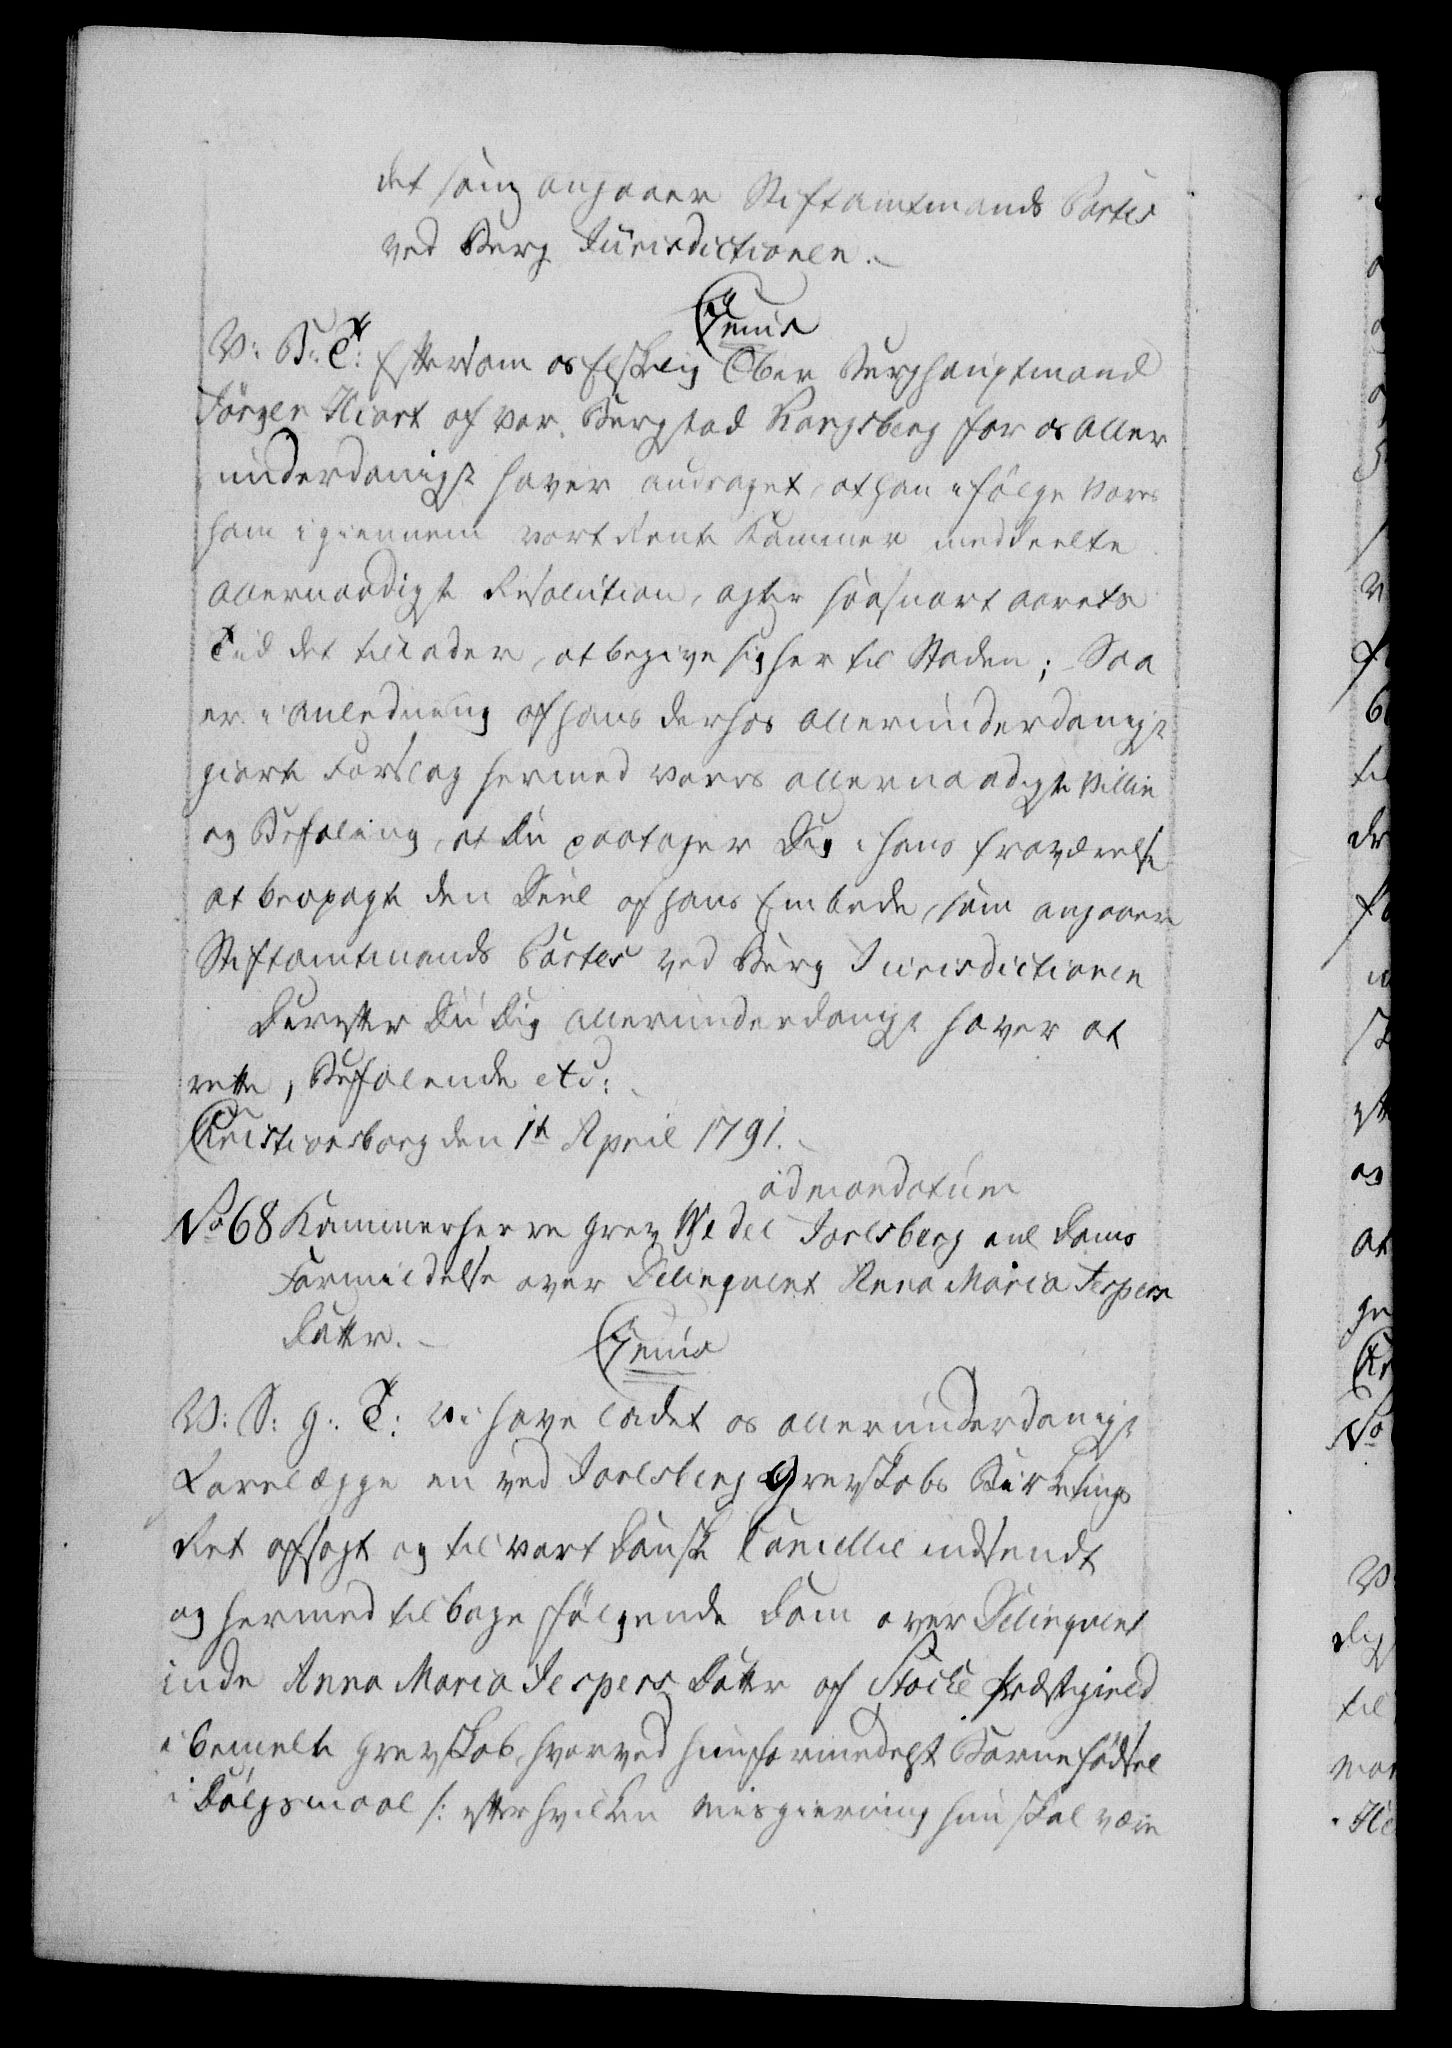 det som angaaer Stiftamtmands Partes
ved Berg Jurisdictionen.
Genis
V: B: T: Eftersom os Elskelig Ober Berghauptmand
Jörgen Hiort af vor Bergstad Kongsberg for os aller
underdanigst haver andraget, at han i fölge vores
ham igiennem vort Rente Kammer meddeelte
allernaadigste Resolution, agter saasnart aarets
Tid det tillader, at begive sig her til Staden; Saa
er i anledning af hans derhos allerunderdanigst
giorte Forslag hermed vores allernaadigste Villie
og Befaling, at Du paatager Dig i hans fraværelse
at besørge den Deel af hans Embede, som angaaer
Stiftamtmands Partes ved Berg Jurisdictionen
Derefter Du Dig allerunderdanigst haver at
rette, Befalende etc:
Christiansborg den 1te April 1791.
ad mandatum
No 68 Kammerherre Grev Wedel Jarlsberg anl Doms
Formildelse over Delinqvent Anna Maria Jespers
Datter.
Genis
V: S: G: T: Vi have ladet os allerunderdanigst
Forelægge en ved Jarlsberg Grevskabs Birketings
Ret afsagt og til vort danske Cancellie indsendt
og hermed tilbage fölgende Dom over Delinqvent
inde Anna Maria Jespers Datter af Stocke Præstegield
i bemelte Grevskab, hvorved hun formedelst Barnefödsel
i Dölgsmaal /: efter hvilken misgierning hun skal være